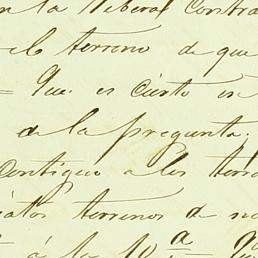 la Liberal Contra
el terreno de que
= Que es cierto en
de la pregunta.
Contiguo a los terr
terrenos de
á la 10ª =